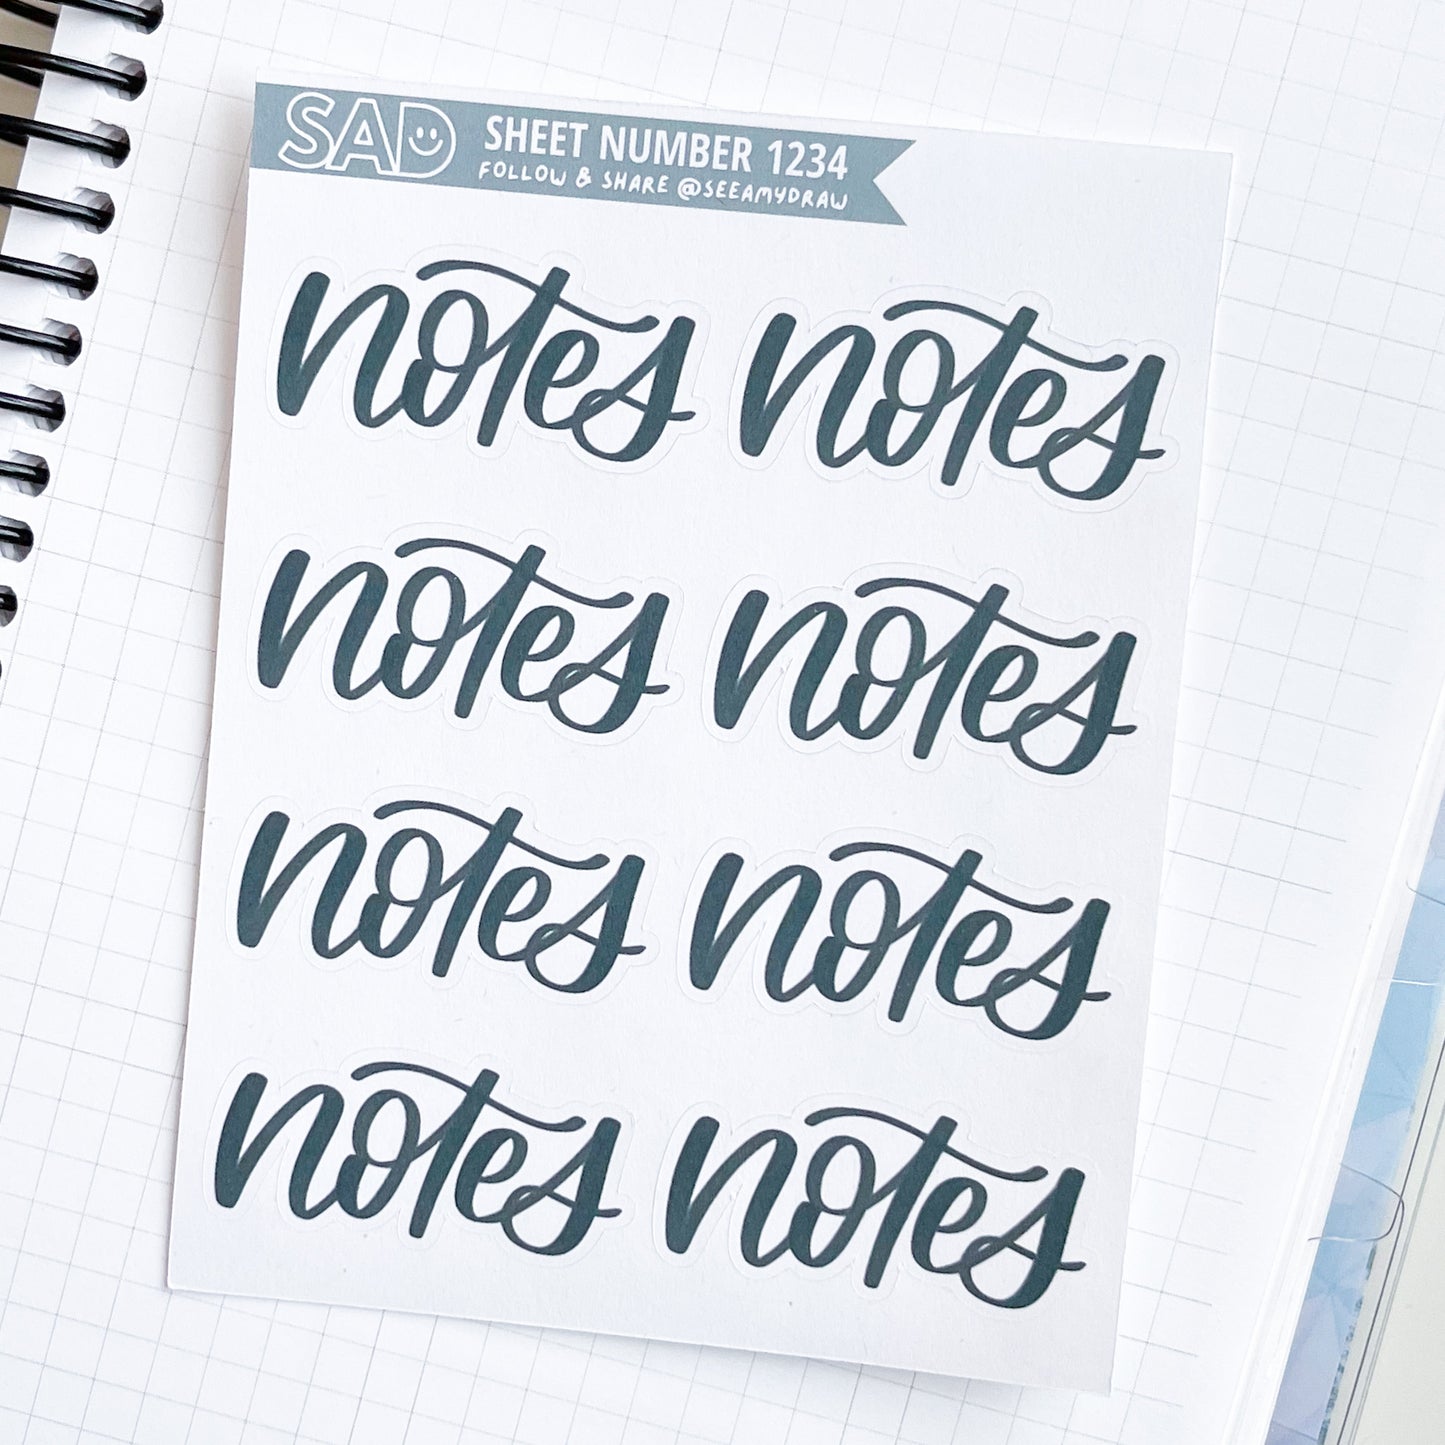 SAD SHEET NUMBER 1234
FOLLOW & SHARE @SEEAMYDRAW
notes notes
notes notes
notes notes
notes notes